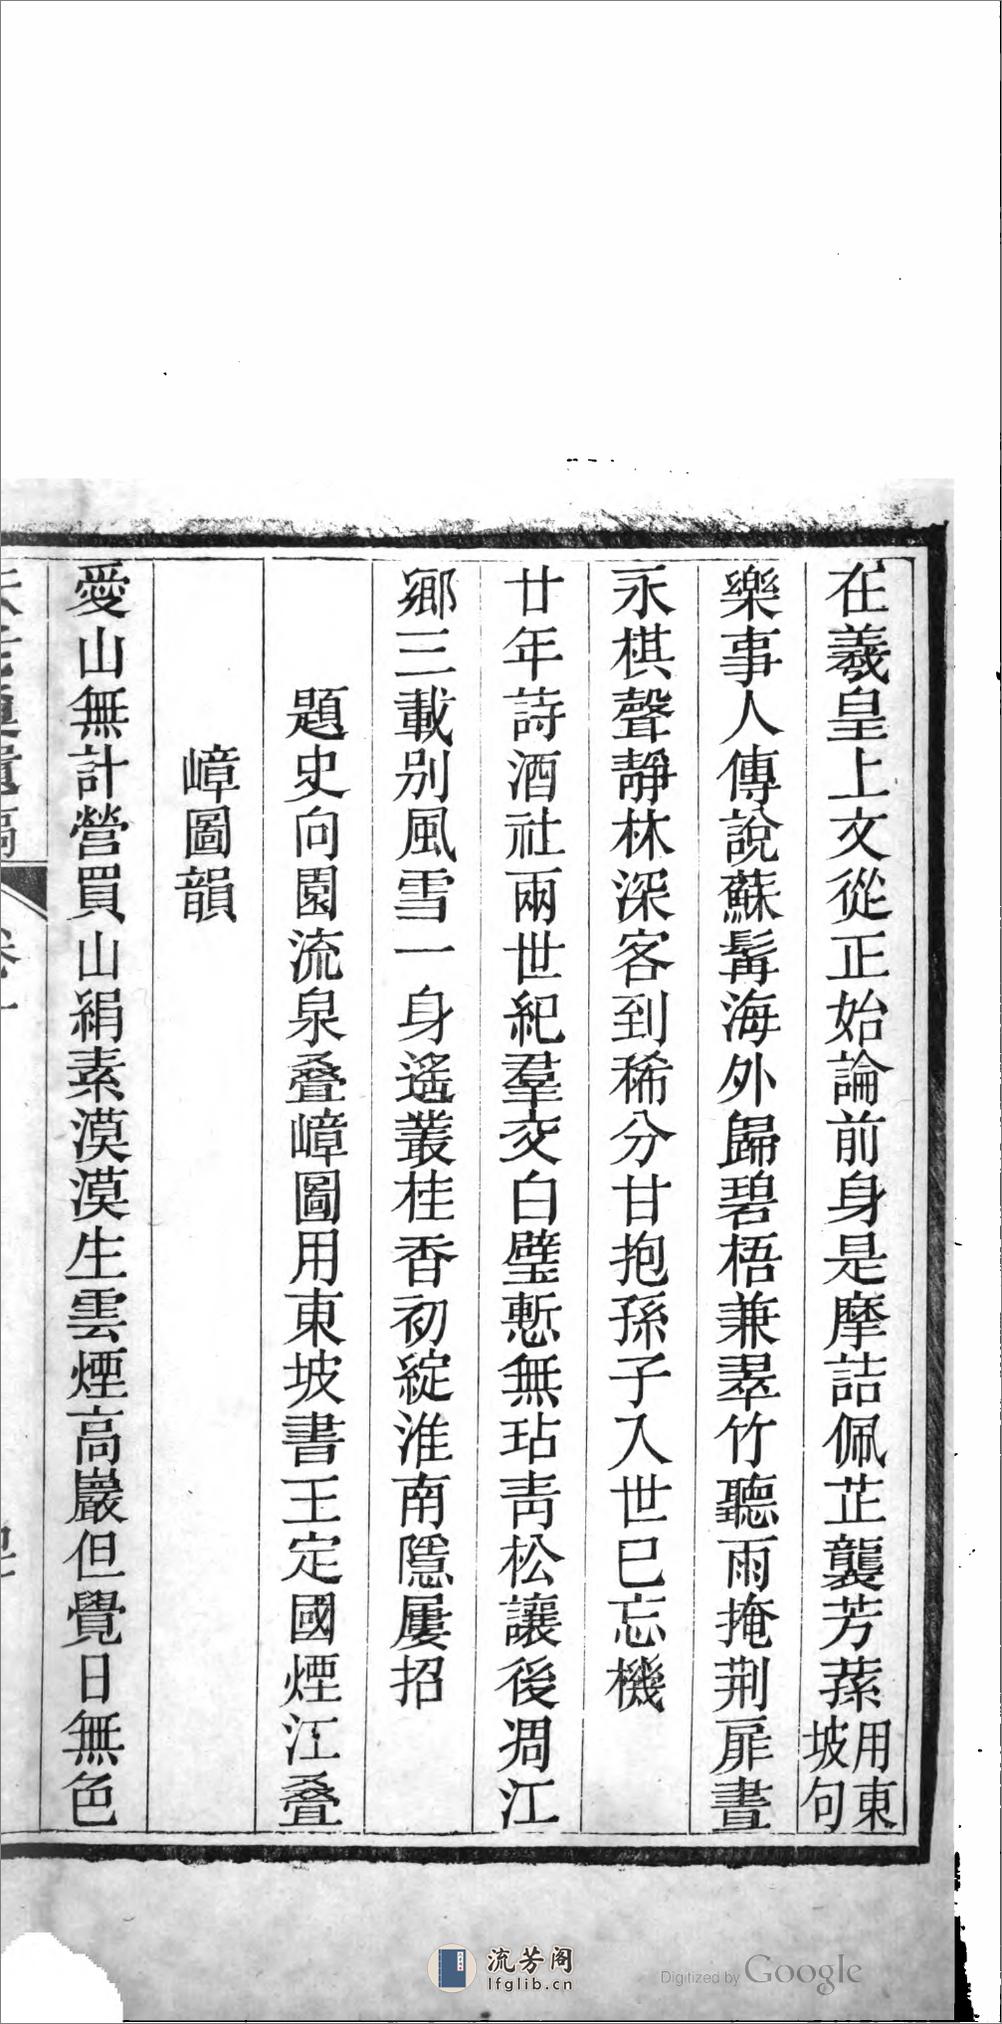 在羲皇上文從正始論前身是摩詰佩芷襲芳蓀用東坡句
樂事人傳說蘇髯海外歸碧梧兼翠竹聽雨掩荆扉晝
永棋聲靜林深客到稀分甘抱孫子入世已忘機
廿年詩酒社兩世紀羣交白璧慙無玷青松讓後凋江
鄉三載别風雪一身遙叢桂香初綻淮南隱屢招
題史向園流泉叠嶂圖用東坡書王定國煙江叠
嶂圖韻
愛山無計營買山絹素漠漠生雲煙高巖但覺日無色
流芳阁
lfglib.cn
Digitized by Google